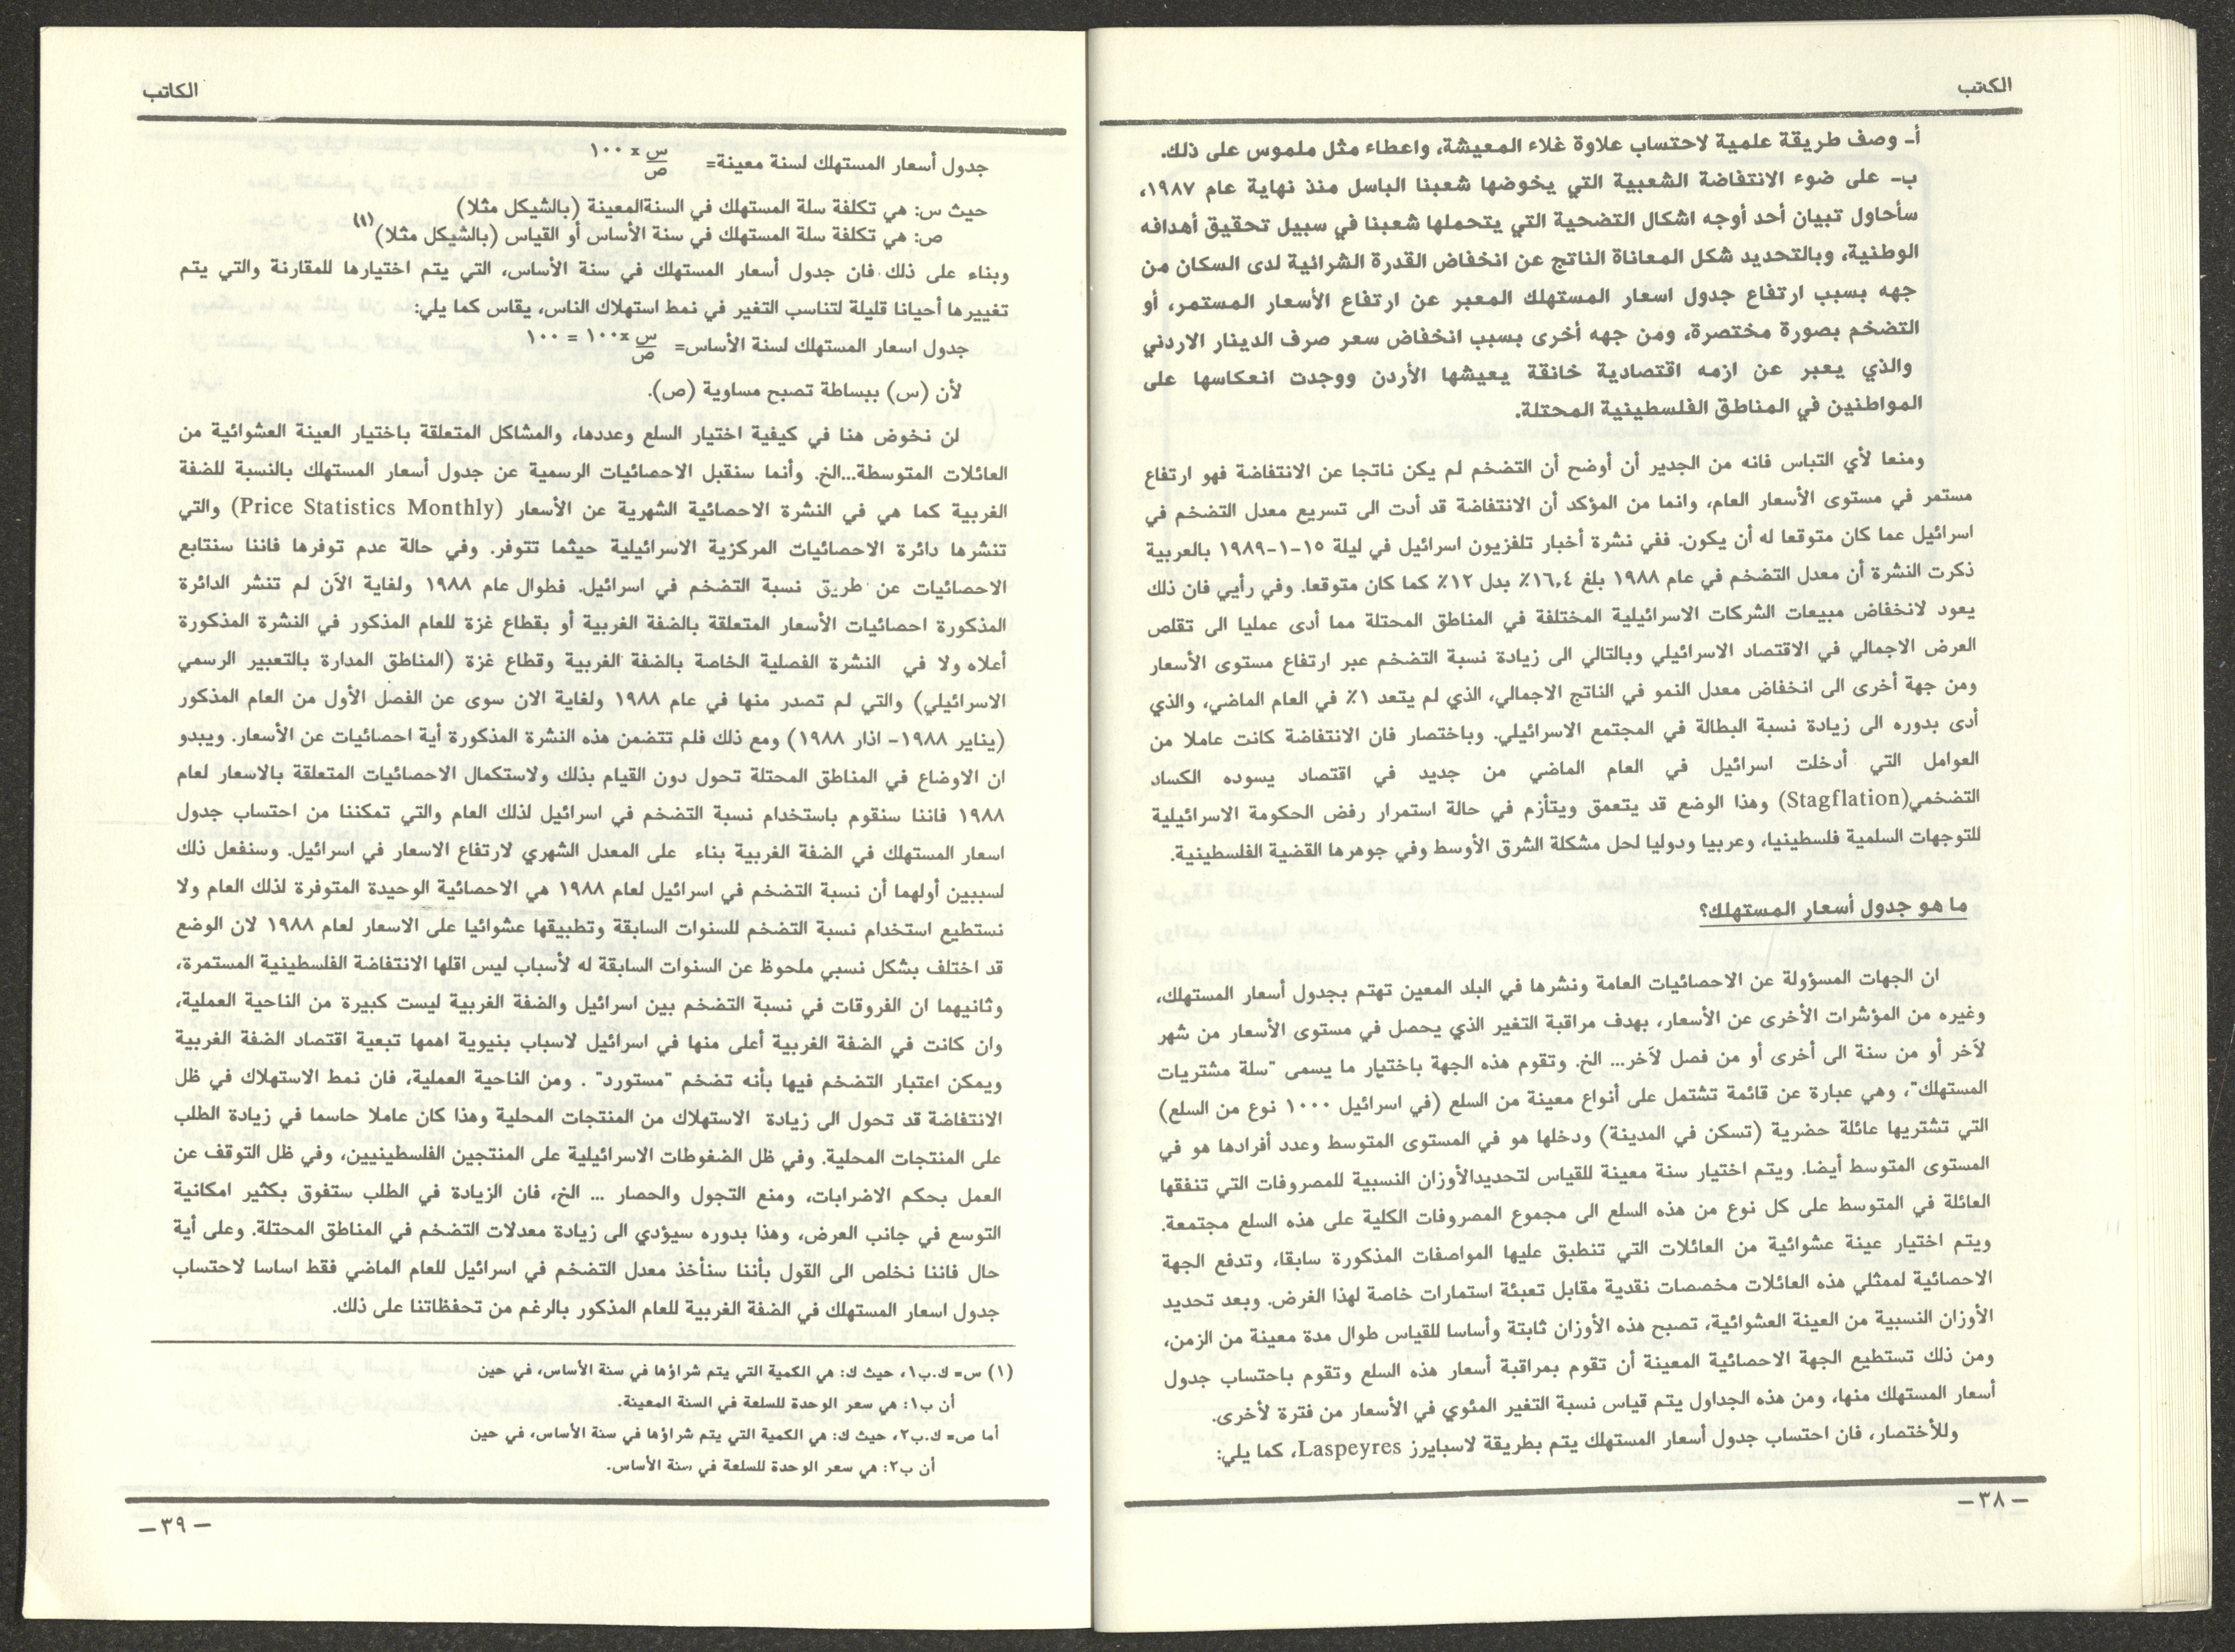 الكاتب
أ- وصف طريقة علمية لاحتساب علاوة غلاء المعيشة، واعطاء مثل ملموس على ذلك.
ب- على ضوء الانتفاضة الشعبية التي يخوضها شعبنا الباسل منذ نهاية عام ١٩٨٧،
سأحاول تبيان أحد أوجه اشكال التضحية التي يتحملها شعبنا في سبيل تحقيق أهدافه
الوطنية، وبالتحديد شكل المعاناة الناتج عن انخفاض القدرة الشرائية لدى السكان من
جهه بسبب ارتفاع جدول اسعار المستهلك المعبر عن ارتفاع الأسعار المستمر، أو
التضخم بصورة مختصرة، ومن جهه أخرى بسبب انخفاض سعر صرف الدينار الاردني
والذي يعبر عن ازمه اقتصادية خانقة يعيشها الأردن ووجدت انعكاسها على
المواطنين في المناطق الفلسطينية المحتلة.
ومنعا لأي التباس فانه من الجدير أن أوضح أن التضخم لم يكن ناتجا عن الانتفاضة فهو ارتفاع
مستمر في مستوى الأسعار العام، وانما من المؤكد أن الانتفاضة قد أدت الى تسريع معدل التضخم في
اسرائيل عما كان متوقعا له أن يكون. ففي نشرة أخبار تلفزيون اسرائيل في ليلة ١٥-١-١٩٨٩ بالعربية
ذكرت النشرة أن معدل التضخم في عام ١٩٨٨ بلغ ١٦,٤٪ بدل ١٢٪ كما كان متوقعا. وفي رأيي فان ذلك
يعود لانخفاض مبيعات الشركات الاسرائيلية المختلفة في المناطق المحتلة مما أدى عمليا الى تقلص
العرض الاجمالي في الاقتصاد الاسرائيلي وبالتالي الى زيادة نسبة التضخم عبر ارتفاع مستوى الأسعار
ومن جهة أخرى الى انخفاض معدل النمو في الناتج الاجمالي، الذي لم يتعد ١٪ في العام الماضي، والذي
أدى بدوره الى زيادة نسبة البطالة في المجتمع الاسرائيلي. وباختصار فان الانتفاضة كانت عاملا من
العوامل التي أدخلت اسرائيل في العام الماضي من جديد في اقتصاد يسوده الكساد
التضخمي(Stagflation) وهذا الوضع قد يتعمق ويتأزم في حالة استمرار رفض الحكومة الاسرائيلية
للتوجهات السلمية فلسطينيا، وعربيا ودوليا لحل مشكلة الشرق الأوسط وفي جوهرها القضية الفلسطينية.
ما هو جدول أسعار المستهلك؟
ان الجهات المسؤولة عن الاحصائيات العامة ونشرها في البلد المعين تهتم بجدول أسعار المستهلك،
وغيره من المؤشرات الأخرى عن الأسعار، بهدف مراقبة التغير الذي يحصل في مستوى الأسعار من شهر
لآخر أو من سنة الى أخرى أو من فصل لآخر... الخ. وتقوم هذه الجهة باختيار ما يسمى "سلة مشتريات
المستهلك"، وهي عبارة عن قائمة تشتمل على أنواع معينة من السلع (في اسرائيل ١٠٠٠ نوع من السلع)
التي تشتريها عائلة حضرية (تسكن في المدينة) ودخلها هو في المستوى المتوسط وعدد أفرادها هو في
المستوى المتوسط أيضا. ويتم اختيار سنة معينة للقياس لتحديدالأوزان النسبية للمصروفات التي تنفقها
العائلة في المتوسط على كل نوع من هذه السلع الى مجموع المصروفات الكلية على هذه السلع مجتمعة.
ويتم اختيار عينة عشوائية من العائلات التي تنطبق عليها المواصفات المذكورة سابقا، وتدفع الجهة
الاحصائية لممثلي هذه العائلات مخصصات نقدية مقابل تعبئة استمارات خاصة لهذا الغرض. وبعد تحديد
الأوزان النسبية من العينة العشوائية، تصبح هذه الأوزان ثابتة وأساسا للقياس طوال مدة معينة من الزمن،
ومن ذلك تستطيع الجهة الاحصائية المعينة أن تقوم بمراقبة أسعار هذه السلع وتقوم باحتساب جدول
أسعار المستهلك منها، ومن هذه الجداول يتم قياس نسبة التغير المئوي في الأسعار من فترة لأخرى.
وللأختصار، فان احتساب جدول أسعار المستهلك يتم بطريقة لاسبايرز Laspeyres، كما يلي:
-٣٨-
الكاتب
جدول أسعار المستهلك لسنة معينة= س/ص x ١٠٠
حيث س: هي تكلفة سلة المستهلك في السنةالمعينة (بالشيكل مثلا)
ص: هي تكلفة سلة المستهلك في سنة الأساس أو القياس (بالشيكل مثلا) (١)
وبناء على ذلك فان جدول أسعار المستهلك في سنة الأساس، التي يتم اختيارها للمقارنة والتي يتم
تغييرها أحيانا قليلة لتناسب التغير في نمط استهلاك الناس، يقاس كما يلي:
جدول اسعار المستهلك لسنة الأساس= س/ص x١٠٠ = ١٠٠
لأن (س) ببساطة تصبح مساوية (ص).
لن نخوض هنا في كيفية اختيار السلع وعددها، والمشاكل المتعلقة باختيار العينة العشوائية من
العائلات المتوسطة...الخ. وأنما سنقبل الاحصائيات الرسمية عن جدول أسعار المستهلك بالنسبة للضفة
الغربية كما هي في النشرة الاحصائية الشهرية عن الأسعار (Price Statistics Monthly) والتي
تنشرها دائرة الاحصائيات المركزية الاسرائيلية حيثما تتوفر. وفي حالة عدم توفرها فاننا سنتابع
الاحصائيات عن طريق نسبة التضخم في اسرائيل. فطوال عام ١٩٨٨ ولغاية الآن لم تنشر الدائرة
المذكورة احصائيات الأسعار المتعلقة بالضفة الغربية أو بقطاع غزة للعام المذكور في النشرة المذكورة
أعلاه ولا في النشرة الفصلية الخاصة بالضفة الغربية وقطاع غزة (المناطق المدارة بالتعبير الرسمي
الاسرائيلي) والتي لم تصدر منها في عام ١٩٨٨ ولغاية الان سوى عن الفصل الأول من العام المذكور
(يناير ١٩٨٨- اذار ١٩٨٨) ومع ذلك فلم تتضمن هذه النشرة المذكورة أية احصائيات عن الأسعار. ويبدو
ان الاوضاع في المناطق المحتلة تحول دون القيام بذلك ولاستكمال الاحصائيات المتعلقة بالاسعار لعام
١٩٨٨ فاننا سنقوم باستخدام نسبة التضخم في اسرائيل لذلك العام والتي تمكننا من احتساب جدول
اسعار المستهلك في الضفة الغربية بناء على المعدل الشهري لارتفاع الاسعار في اسرائيل. وسنفعل ذلك
لسببين أولهما أن نسبة التضخم في اسرائيل لعام ١٩٨٨ هي الاحصائية الوحيدة المتوفرة لذلك العام ولا
نستطيع استخدام نسبة التضخم للسنوات السابقة وتطبيقها عشوائيا على الاسعار لعام ١٩٨٨ لان الوضع
قد اختلف بشكل نسبي ملحوظ عن السنوات السابقة له لأسباب ليس اقلها الانتفاضة الفلسطينية المستمرة،
وثانيهما ان الفروقات في نسبة التضخم بين اسرائيل والضفة الغربية ليست كبيرة من الناحية العملية،
وان كانت في الضفة الغربية أعلى منها في اسرائيل لاسباب بنيوية اهمها تبعية اقتصاد الضفة الغربية
ويمكن اعتبار التضخم فيها بأنه تضخم "مستورد" . ومن الناحية العملية، فان نمط الاستهلاك في ظل
الانتفاضة قد تحول الى زيادة الاستهلاك من المنتجات المحلية وهذا كان عاملا حاسما في زيادة الطلب
على المنتجات المحلية. وفي ظل الضغوطات الاسرائيلية على المنتجين الفلسطينيين، وفي ظل التوقف عن
العمل بحكم الاضرابات، ومنع التجول والحصار ... الخ، فان الزيادة في الطلب ستفوق بكثير امكانية
التوسع في جانب العرض، وهذا بدوره سيؤدي الى زيادة معدلات التضخم في المناطق المحتلة. وعلى أية
حال فاننا نخلص الى القول بأننا سنأخذ معدل التضخم في اسرائيل للعام الماضي فقط اساسا لاحتساب
جدول اسعار المستهلك في الضفة الغربية للعام المذكور بالرغم من تحفظاتنا على ذلك.
(١) س= ك.ب١، حيث ك: هي الكمية التي يتم شراؤها في سنة الأساس، في حين
أن ب١: هي سعر الوحدة للسلعة في السنة المعينة.
أما ص= ك.ب٢، حيث ك: هي الكمية التي يتم شراؤها في سنة الأساس، في حين
أن ب٢: هي سعر الوحدة للسلعة في سنة الأساس.
-٣٩-